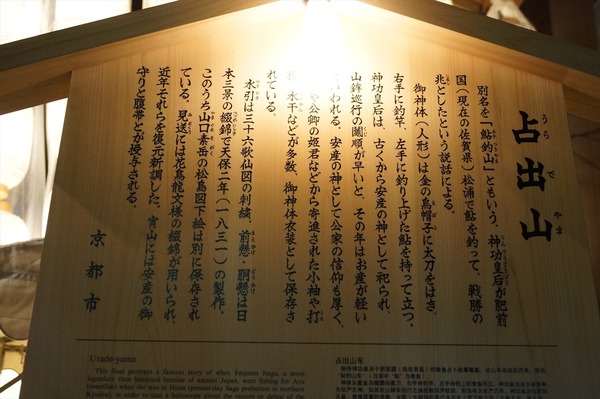 占出山
うらでやま
別名を「鮎釣山」ともいう。神功皇后が肥前
国（現在の佐賀県）松浦で鮎を釣って、戦勝の
兆としたという説話による。
御神体（人形）は金の烏帽子に太刀をはき、
右手に釣竿、左手に釣り上げた鮎を持って立つ。
神功皇后は、古くから安産の神として祀られ、
山鉾巡行の鬮順が早いと、その年はお産が軽い
いわれる。安産の神として公家の信仰も厚く、
や公卿の姫君などから寄進された小袖や打
水干などが多数、御神体衣装として保存さ
れている。
水引は三十六歌仙図の刺繍、前懸・胴懸は日
本三景の綴錦で天保二年（一八三一）の製作。
このうち山口素岳の松島図下絵は別に保存され
ている。見送には花鳥龍文様の綴錦が用いられ、
近年それらを復元新調した。宵山には安産の御
守りと腹帯とが授与される。
京都市
Urade-yama
This float portrays a famous story of when Empress Jingu, a more
legendary than historical heroine of ancient Japan, went fishing for Ayu
(sweetfish) when she was in Hizen (present-day Saga prefecture in northern
Kyushu), in order to cast a horoscope about the victory or defeat of the
占出山车